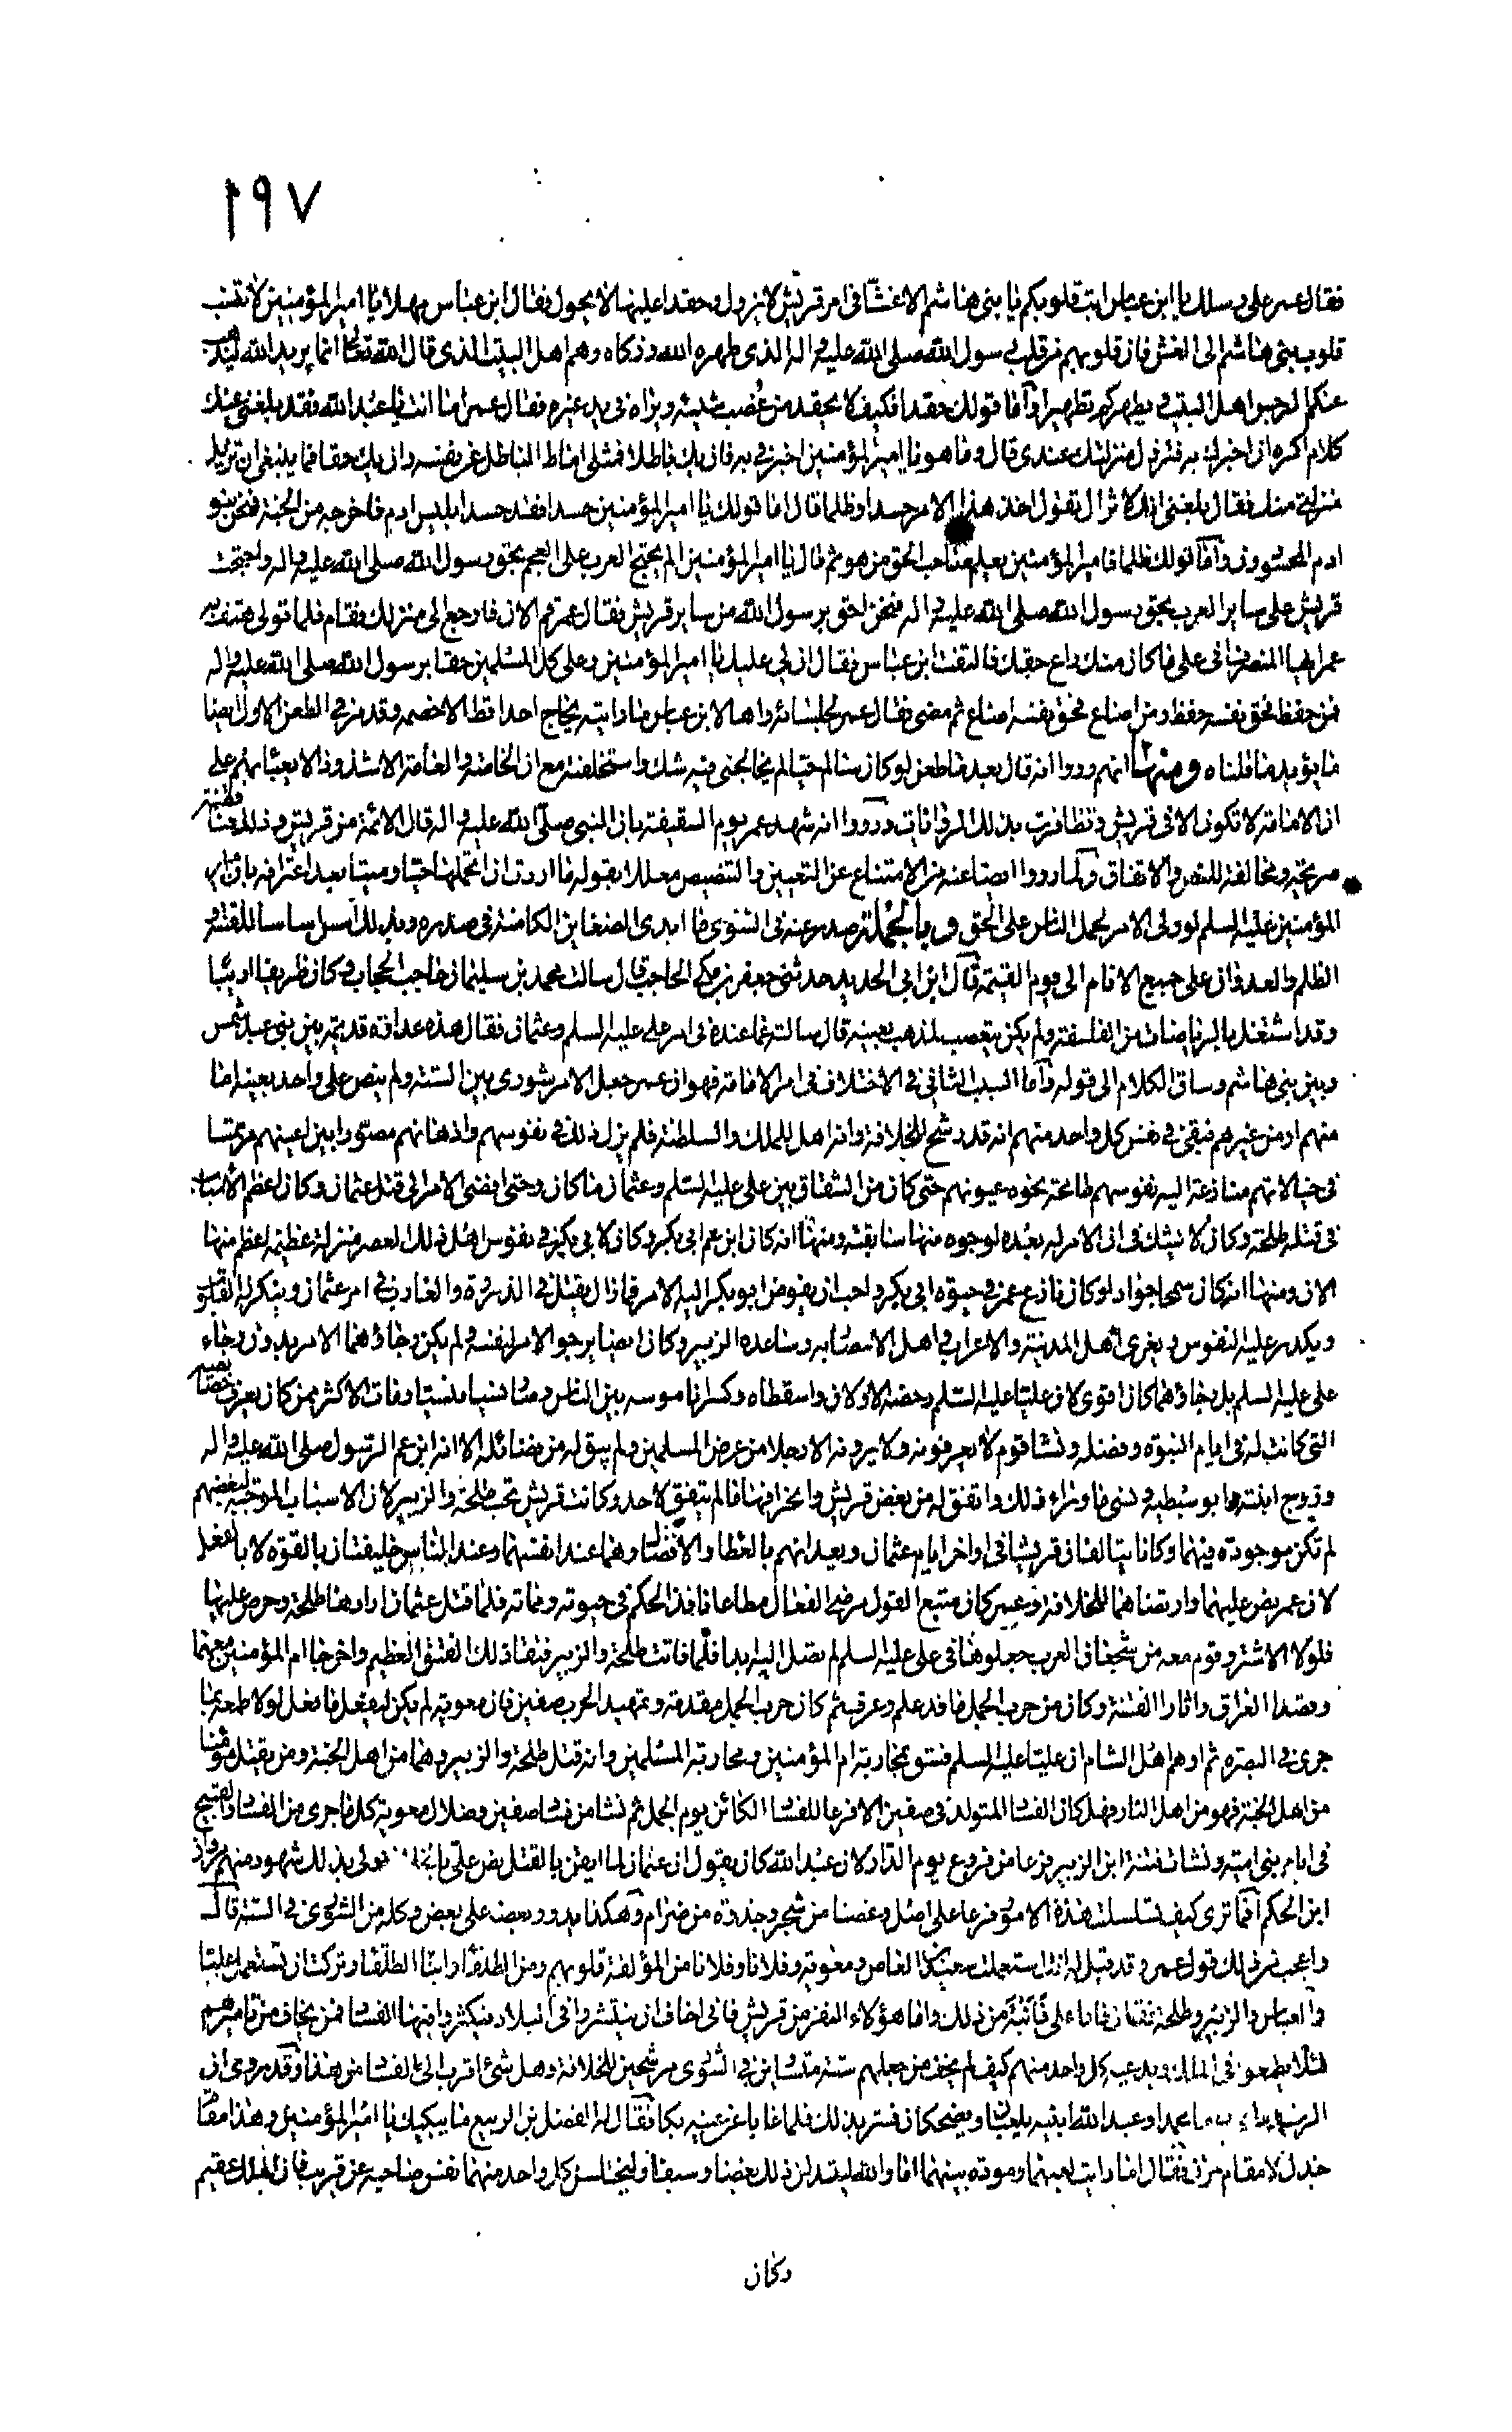 ٢٩٧
فقال عمر على رسلك يا ابن عباس ابت قلوبكم يا بنى هاشم الا غشّا فى امر قريش لا يزول وحقدا عليها لا يحول فقال ابن عباس مهلا يا امير المؤمنين لا تنسب
قلوب بنى هاشم الى الغش فان قلوبهم من قلب رسول الله صلى الله عليه واله الذى طهره الله وزكاه وهم اهل البيت الذى قال الله تعالى انما يريد الله ليذهب
عنكم الرجس اهل البيت ويطهركم تطهيرا وأما قولك حقدا فكيف لا يحقد من غصب شيئه ويراه فى يد غيره فقال عمر اما انت يا عبد الله فقد بلغنى عنك
كلام اكره ان اخبرك به فتزول منزلتك عندى قال وما هو يا امير المؤمنين اخبرنى به فان يك باطلا فمثلى اماط الباطل عن نفسه وان يك حقا فما ينبغى ان تزيل
منزلتى منك فقال بلغنى انك لا تزال تقول اخذ هذا الامر حسدا وظلما قال اما قولك يا امير المؤمنين حسدا فقد حسد ابليس ادم فاخرجه من الجنة فنحن بنو
ادم المحسودون وأما قولك ظلما فامير المؤمنين يعلم صاحب الحق من هو ثم قال يا امير المؤمنين الم يحتج العرب على العجم بحق رسول الله صلى الله عليه واله واحتجت
قريش على ساير العرب بحق رسول الله صلى الله عليه واله فنحن احق برسول الله من ساير قريش فقال عمر قم الان فارجع الى منزلك فقام فلما تولى هتف به
عمر ايها المنصرف انى على ما كان منك راع حقك فالتفت ابن عباس فقال ان لى عليك يا امير المؤمنين وعلى كل المسلمين حقا برسول الله صلى الله عليه واله
فمن حفظه فحق نفسه حفظ ومن اضاع فحق نفسه اضاع ثم مضى فقال عمر لجلسائه واها لابن عباس ما رايته يحاج احدا قط الا خصمه وقد مر فى الطعن الاول ايضا
ما يؤيد ما قلناه ومنها انهم رووا انه قال بعد ما طعن لو كان سالم حيا لم يخالجنى فيه شك واستخلفته مع ان الخاصة والعامة الا شذوذا لا يعبأ بهم على
ان الامامة لا تكون الا فى قريش وتظافرت بذلك الروايات ورووا انه شهد عمر يوم السقيفة بان النبى صلى الله عليه واله قال الائمة من قريش وذلك مناقضة
صريحة ومخالفة للنص والاتفاق ولما رووا ايضا عنه من الامتناع عن التعيين والتنصيص معللا بقوله ما اردت ان اتحملها حيا وميتا بعد اعترافه بان امير
المؤمنين عليه السلم لو ولى الامر لحمل الناس على الحق وبالجملة صدر عنه فى الشورى ما ابدى الضغاين الكامنة فى صدره وبذلك اسس اساسا للفتنة و
الظلم والعدوان على جميع الانام الى يوم القيمة قال ابن ابى الحديد حدثنى جعفر بن مكى الحاجب قال سالت محمد بن سليمان حاجب الحجاب وكان ظريفا اديبا
وقد اشتغل بالرياضيات من الفلسفة ولم يكن يتعصب لمذهب بعينه قال سالته عما عنده فى امر على عليه السلم وعثمان فقال هذه عداوة قديمة بين بنى عبد شمس
وبين بنى هاشم وساق الكلام الى قوله وأما السبب الثانى فى الاختلاف فى امر الامامة فهو ان عمر جعل الامر شورى بين الستة ولم ينص على واحد بعينه اما
منهم او من غيرهم فبقى فى نفس كل واحد منهم انه قد رشح للخلافة وانه اهل للملك والسلطنة فلم يزل ذلك فى نفوسهم واذهانهم مصورا بين اعينهم مرتسما
فى خيالاتهم منازعة اليه نفوسهم طامحة نحوه عيونهم حتى كان من الشقاق بين على عليه السلم وعثمان ما كان وحتى افضى الامر الى قتل عثمان وكان اعظم الاسباب
فى قتله طلحة وكان لا يشك فى ان الامر له بعده لوجوه منها سابقته ومنها انه كان ابن عم ابى بكر وكان لابى بكر فى نفوس اهل ذلك العصر منزلة عظيمة اعظم منها
الان ومنها انه كان سمحا جوادا وكان نازع عمر فى حيوة ابى بكر واحب ان يفوض ابو بكر اليه الامر فما زال يفتل فى الذروة والغارب فى امر عثمان وينكر له القلوب
ويكدر عليه النفوس ويغرى اهل المدينة والاعراب واهل الامصار به وساعده الزبير وكان ايضا يرجو الامر لنفسه ولم يكن رجاؤهما الامر بدون رجاء
على عليه السلم بل رجاؤهما كان اقوى لان عليا عليه السلم دحضه الاولان واسقطاه وكسرا ناموسه بين الناس وصار نسيا منسيا ومات الاكثر ممن كان يعرف خصايصه
التى كانت له فى ايام النبوة وفضله ونشا قوم لا يعرفونه ولا يرونه الا رجلا من عرض المسلمين ولم يبق له من فضائله الا انه ابن عم الرسول صلى الله عليه واله
وزوج ابنته وابو سبطيه ونسى ما وراء ذلك واتفق له من بغض قريش وانحرافها ما لم يتفق لاحد وكانت قريش تحب طلحة والزبير لان الاسباب الموجبة لبغضهم
لم تكن موجودة فيهما وكانا يتالفان قريشا فى اواخر ايام عثمان ويعدانهم بالعطاء والافضال وهما عند انفسهما وعند الناس خليفتان بالقوة لا بالفعل
لان عمر نص عليهما وارتضاهما للخلافة وعمر كان متبع القول مرضى الفعال مطاعا نافذ الحكم فى حيوته ومماته فلما قتل عثمان ارادها طلحة وحرص عليها
فلولا الاشتر وقوم معه من شجعان العرب جعلوها فى على عليه السلم لم تصل اليه ابدا فلما فاتت طلحة والزبير فتقا ذلك الفتق العظيم واخرجا ام المؤمنين معهما
وقصدا العراق واثارا الفتنة وكان من حرب الجمل ما قد علم وعرف ثم كان حرب الجمل مقدمة وتمهيد الحرب صفين فان معوية لم يكن ليفعل ما فعل لولا طمعه بما
جرى فى البصرة ثم اوهم اهل الشام ان عليا عليه السلم فسق بمحاربة ام المؤمنين ومحاربة المسلمين وانه قتل طلحة والزبير وهما من اهل الجنة ومن يقتل مؤمنا
من اهل الجنة فهو من اهل النار فهل كان الفساد المتولد فى صفين الا فرعا للفساد الكائن يوم الجمل ثم نشا من فساد صفين وضلال معوية كل ما جرى من الفساد والقبيح
فى ايام بنى امية ونشات فتنة ابن الزبير فرعا من فروع يوم الدار لان عبد الله كان يقول ان عثمان لما ايقن بالقتل نص على بالخلافة ولى بذلك شهود منهم مروان
ابن الحكم أفما ترى كيف تسلسلت هذه الامور فرعا على اصل وغصنا من شجر وجذوة من ضرام وهكذا يدور بعضه على بعض وكله من الشورى فى الستة قال
واعجب من ذلك قول عمر وقد قيل له انك استعملت سعيد بن العاص ومعوية وفلانا وفلانا من المؤلفة قلوبهم ومن الطلقاء وابناء الطلقاء وتركت ان تستعمل عليا
والعباس والزبير وطلحة فقال اما على فأنبه من ذلك واما هؤلاء النفر من قريش فانى اخاف ان ينتشروا فى البلاد فيكثروا فيها الفساد فمن يخاف من تاميرهم
لئلا يطمعوا فى الملك ويدعيه كل واحد منهم كيف لم يخف من جعلهم ستة متساوين فى الشورى مرشحين للخلافة وهل شئ اقرب الى الفساد من هذا وقد روى ان
الرشيد راى محمدا وعبد الله ابنيه يلعبان ويضحكان فسر بذلك فلما غابا عن عينه بكا فقال له الفضل بن الربيع ما يبكيك يا امير المؤمنين وهذا مقام
جذل لا مقام حزن فقال اما رايت لعبهما ومودة بينهما اما والله ليتبدلن ذلك بغضا وسيفا وليختلسن كل واحد منهما نفس صاحبه عن قريب فان الملك عقيم
وكان